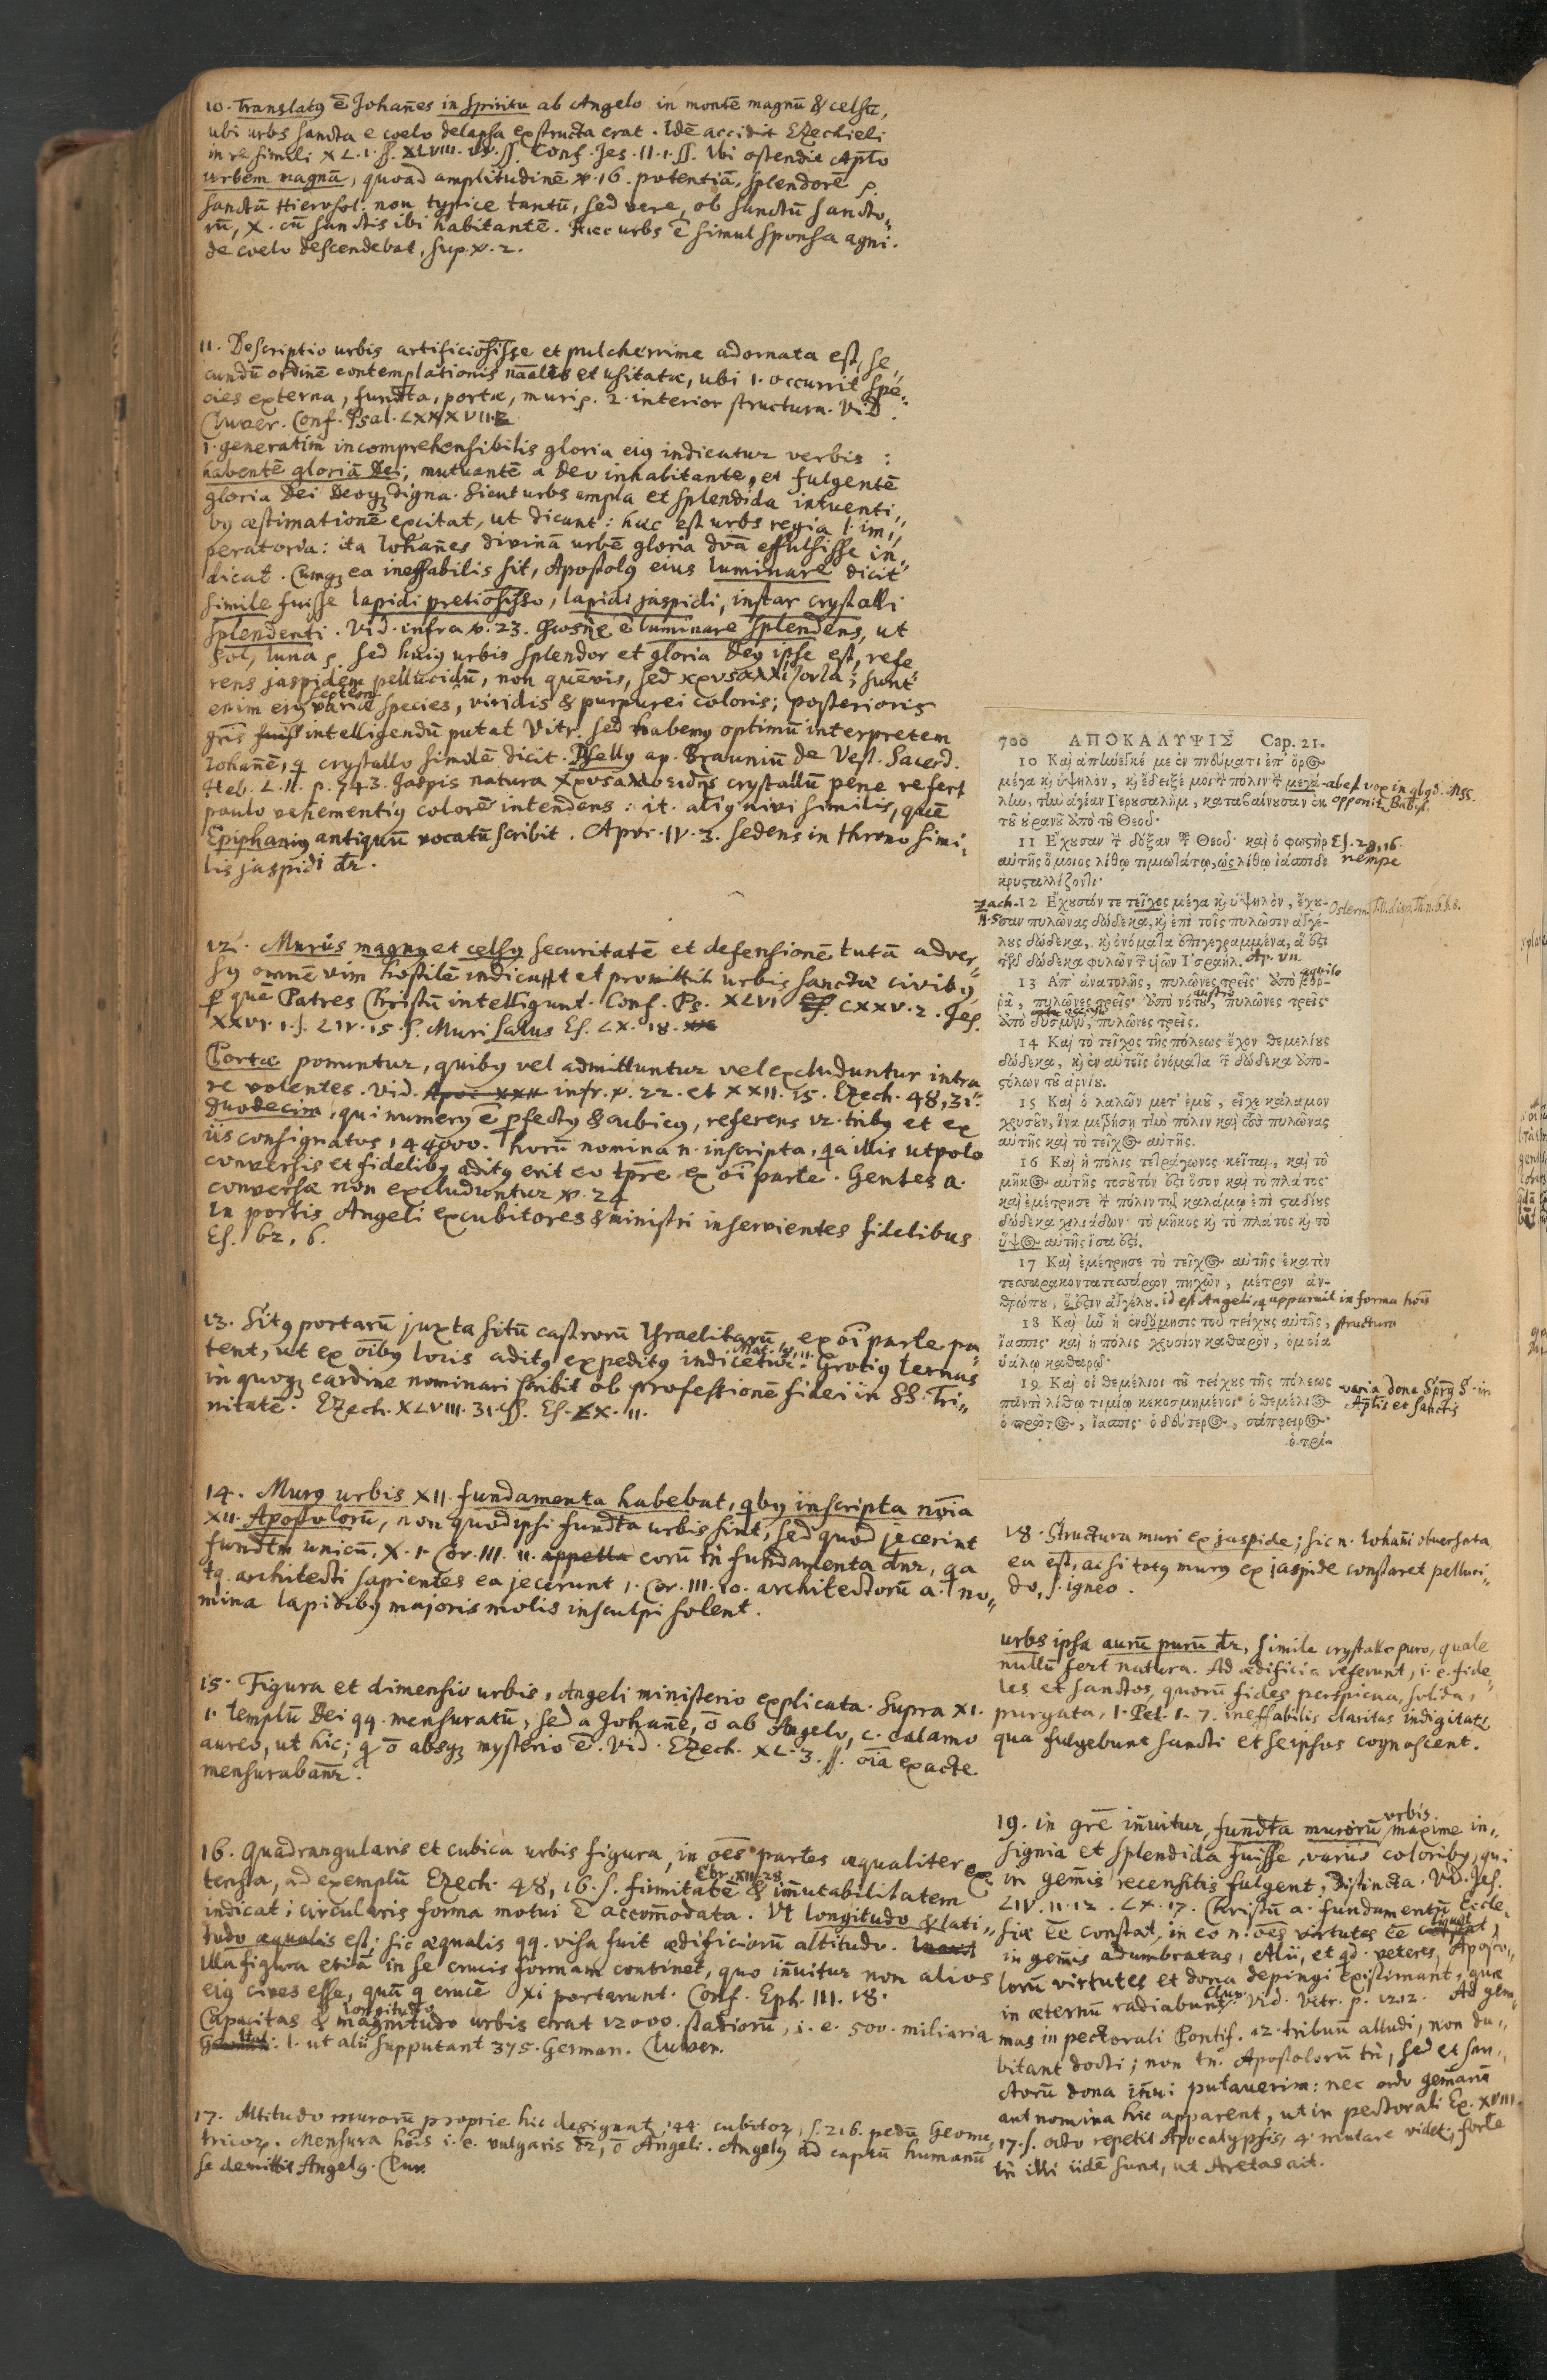 10. Translatꝰ ē Johañes in spiritu ab Angelo in montē magnū & celsū,
ubi urbs sancta e coelo delapsa exstructa erat. Idē accidit Ezechieli
in re simili XL. 1. ss. XLVIII. ss. Conf. Jes. II. 1. ss. Ubi ostendit
urbem magnā, quoad amplitudinē v. 16. potentiā, splendorē
sanctā Hierosol. non typice tantū, sed vere, ob sanctū sancto„
rū, X. cū sanctis ibi habitantē. Haec urbs ē simul sponsa agni.
de coelo descendebat, sup. v. 2.
11. Descriptio urbis artificiosisse et pulcherrime adornata est, se„
cundū ordinē contemplationis et usitatae, ubi 1. occurrit spe„
cies externa, fundta, portae, muri 2. interior structura. Vid.
Cluver. Conf. Psal. LXXXVII.
1. generatim incomprehensibilis gloria eiꝰ indicatur verbis :
habentē gloriā Dei, mutuantē a Deo inhabitante, et fulgentē
gloria Dei Deoqꝫ digna. Sicut urbs ampla et splendida intuenti„
bꝰ aestimationē excitat, ut dicant: haec est urbs regia l. im„
peratoria: ita Iohañes divinā urbē gloria dvā effulsisse in„
dicat. Cumqꝫ ea ineffabilis sit, Apostolꝰ eius luminare dicit
simile fuisse lapidi pretiosisso, lapidi jaspidi, instar crystalli
splendenti. Vid. infra v. 23. ē luminare splendens, ut
sol, luna sed huiꝰ urbis splendor et gloria Deꝰ ipse est, refe„
rens jaspidem pellucidū, non quēvis, sed sunt
enim eiꝰ variae species, viridis & purpurei coloris; posterioris
gñis intelligendū putat Vitr. sed habemꝰ optimū interpretem
Iohañē, q crystallo similē dicit. Psellꝰ ap. Brauniū de Vest. Sacerd.
Heb. L. II. p. 743. Jaspis natura crystallū pene refert
paulo vehementiꝰ colorē intendens: it. aliꝰ nivi similis, quē
Epiphaniꝰ antiquū vocatū scribit. Apoc. IV. 3. sedens in throno simi„
lis jaspidi dr.
12. Murus magnꝰ et celsꝰ securitatē et defensionē tutā adver„
sꝰ omnē vim hostilē indicant et promittit urbis sanctae civibꝰ,
ꝑ quē Patres Christū intelligunt. Conf. Ps. XLVI CXXV. 2. Jes.
XXVI. 1. s. LIV. 15. s. Muri Salus Es. LX. 18.
Portae ponuntur, quibꝰ vel admittuntur vel excluduntur intra
re volentes. Vid. infr. v. 22. et XXII. 15. Ezech. 48, 31.
duodecim, qui numerꝰ ē pfectꝰ & cubicꝰ, referens 12. tribꝰ et ex
iis consignatos 144000. horū nomina n. inscripta, qa illis utpote
conversis et fidelibꝰ aditꝰ erit eo tpre ex oi parte. Gentes a.
conversae non excluduntur v. 24
In portis Angeli excubitores & ministri inservientes fidelibus
Es. 62, 6.
13. Sitꝰ portarū juxta sitū castrorū Israelitarū, ex oi parte pa„
tent, ut ex oibꝰ locis aditꝰ expeditꝰ indicetur. Mat. IIX, 11. Grotiꝰ ternas
in quoqꝫ cardine nominari scribit ob professionē fidei in SS. Tri„
nitatē. Ezech. XLVIII. 31. ss. Es. LX. 11.
14. Murꝰ urbis XII. fundamenta habebat, qbꝰ inscripta noia
XII. Apostolorū, non quod ipsi fundta urbis sint, sed quod jecerint
fundtm unicū, X. 1. Cor. III. 11. appella eorū tñ fundamenta dñr, qa
tq. architecti sapientes ea jecerunt 1. Cor. III. 10. architectorū a. no„
mina lapidibꝰ majoris molis insculpi solent.
15. Figura et dimensio urbis, Angeli ministerio explicata. Supra XI.
1. templū Dei qq. mensuratū, sed a Johañe, ō ab Angelo, c. calamo
aureo, ut hic; q ō absqꝫ mysterio ē. Vid. Ezech. XL. 3. ss. oia exacte
mensurabañr.
16. Quadrangularis et cubica urbis figura, in oēs partes aequaliter ex„
tensa, ad exemplū Ezech. 48, 16. s. firmitatē Ebr. XII, 28 & im̃utabilitatem
indicat; circularis forma motui ē accom̃odata. Ut longitudo & lati„
tudo aequalis est: sic aequalis qq. visa fuit aedificiorū altitudo.
Illa figura etiā in se crucis formam continet, quo iñuitur non alios
eiꝰ cives esse, quā q crucē Xi portarunt. Conf. Eph. III. 18.
Capacitas & longitudo magnitudo urbis erat 12000. stadiorū, i. e. 500. miliaria
Ital: l. ut alii supputant 375. German. Cluver.
17. Altitudo murorū proprie hic designat, 144 cubitoꝝ, s. 216. pedū Geome„
tricoꝝ. Mensura hois i. e. vulgaris ō Angeli. Angelꝰ ad captū humanū
se demittit Angelꝰ. Cluv.
700 ΑΠΟΚΑΛΥΨΙΣ Cap. 21.
10 Καὶ ἀπήνεγκέ με ἐν πνεύματι ἐπ' ὄρος
μέγα κỳ ὑψηλὸν, κỳ ἔδειξέ μοι τ̀ πόλιν τ̀ μεγά-
λίω, τίω ἁγίαν Ἱερυσαλὴμ, καταβαίνυσαν ἐκ
τῦ ὐρανῦ ἀπὸ τῦ Θεοῦ·
abest vox in qbgd. Mss.
opponit. Babyl.
11 Ἔχυσαν τ̀ δόξαν τῦ Θεοῦ· καὶ ὁ φωστὴρ
αὐτῆς ὅμοιος λίθῳ τιμιωτάτῳ, ὡς λίθῳ ἰάσπιδι
κρυσταλλίζοντι·
Es. 28, 16.
nempe
12 Ἔχυσάν τε τεῖχος μέγα κỳ ὑψηλὸν, ἔχυ-
σαν πυλῶνας δώδεκα, κỳ ἐπὶ τοῖς πυλῶσιν ἀγγέ-
λυς δώδεκα, κỳ ὀνόματα ἐπιγεγραμμένα, ἅ ἐστι
τῶν δώδεκα φυλῶν τ̃ υἱῶν Ἰσραήλ. Ap. VII
Zach.
II. 5
13 Ἀπ' ἀνατολῆς, πυλῶνες τρεῖς· ἀπὸ βορ-
ρᾶ, πυλῶνες τρεῖς· ἀπὸ νότυ, πυλῶνες τρεῖς·
ἀπὸ δυσμῶν, πυλῶνες τρεῖς.
aquilo
austro
14 Καὶ τὸ τεῖχος τῆς πόλεως ἔχον θεμελίυς
δώδεκα, κỳ ἐν αὐτοῖς ὀνόματα τ̃ δώδεκα ἀπο-
στόλων τῦ ἀρνίυ.
15 Καὶ ὁ λαλῶν μετ' ἐμῦ, εἶχε κάλαμον
χρυσῦν, ἵνα μετρήσῃ τίω πόλιν καὶ τὺς πυλῶνας
αὐτῆς καὶ τὸ τεῖχος αὐτῆς.
16 Καὶ ἡ πόλις τετράγωνος κεῖται, καὶ τὸ
μῆκος αὐτῆς τοσῦτόν ἐστι ὅσον καὶ τὸ πλάτος·
καὶ ἐμέτρησε τ̀ πόλιν τῷ καλάμῳ ἐπὶ σταδίυς
δώδεκα χιλιάδων· τὸ μῆκος κỳ τὸ πλάτος κỳ τὸ
ὕψος αὐτῆς ἴσα ἐστί.
17 Καὶ ἐμέτρησε τὸ τεῖχος αὐτῆς ἑκατὸν
τεσσαρακοντατεσσάρων πηχῶν, μέτρον ἀν-
θρώπυ, ὅ ἐστιν ἀγγέλυ. id est Angeli, q apparuit in forma hois
18 Καὶ ἦν ἡ ἐνδόμησις τοῦ τείχυς αὐτῆς, structura
ἴασπις· καὶ ἡ πόλις χρυσίον καθαρὸν, ὁμοία
ὑάλῳ καθαρῷ·
19 Καὶ οἱ θεμέλιοι τῦ τείχυς τῆς πόλεως
παντὶ λίθῳ τιμίῳ κεκοσμημένοι· ὁ θεμέλιος
ὁ πρῶτος, ἴασπις· ὁ δεύτερος, σάπφειρος·
ὁ τρί-
varia dona Spr̄ꝰ S. in
Aptis et Sanctis
18. Structura muri ex jaspide; sic n. Iohañi obversata
ea est, ac si totꝰ murꝰ ex jaspide constaret pelluci„
do, s. igneo.
urbs ipsa aurū purū dr, simile crystallo puro, quale
nullū fert natura. Ad aedificia referunt, i. e. fide„
les et sanctos, quorū fides perspicua, solida,
purgata, 1. Pet. 1. 7. ineffabilis claritas indigitatꝛ
qua fulgebunt sancti et seipsos cognoscent.
19. in gre iñuitur fundta murorū urbis maxime in„
signia et splendida fuisse, variis coloribꝰ, qui
in gem̃is recensitis fulgent, distincta. Vid. Jes.
LIV. 11. 12. LX. 17. Christū a. fundamentū Eccle„
siae ēē constat, in eo n. oēs virtutes ēē liquet,
in gem̃is adumbratas, Alii, et qd. veteres, Aposto„
lorū virtutes et dona depingi existimant, quae
in aeternū radiabunt. Cluv. Vid. Vitr. p. 1212. Ad gem„
mas in pectorali Pontif. 12. tribuū alludi, non du„
bitant docti; non tñ. Apostolorū tñ, sed et san„
ctorū dona iñui putaverim: nec ordo gem̃arū
aut nomina hic apparent, ut in pectorali Ex. XVIII.
17. s. ordo repetit Apocalypsis, q. mutare videt, forte
tñ illi iidē sunt, ut Aretas ait.